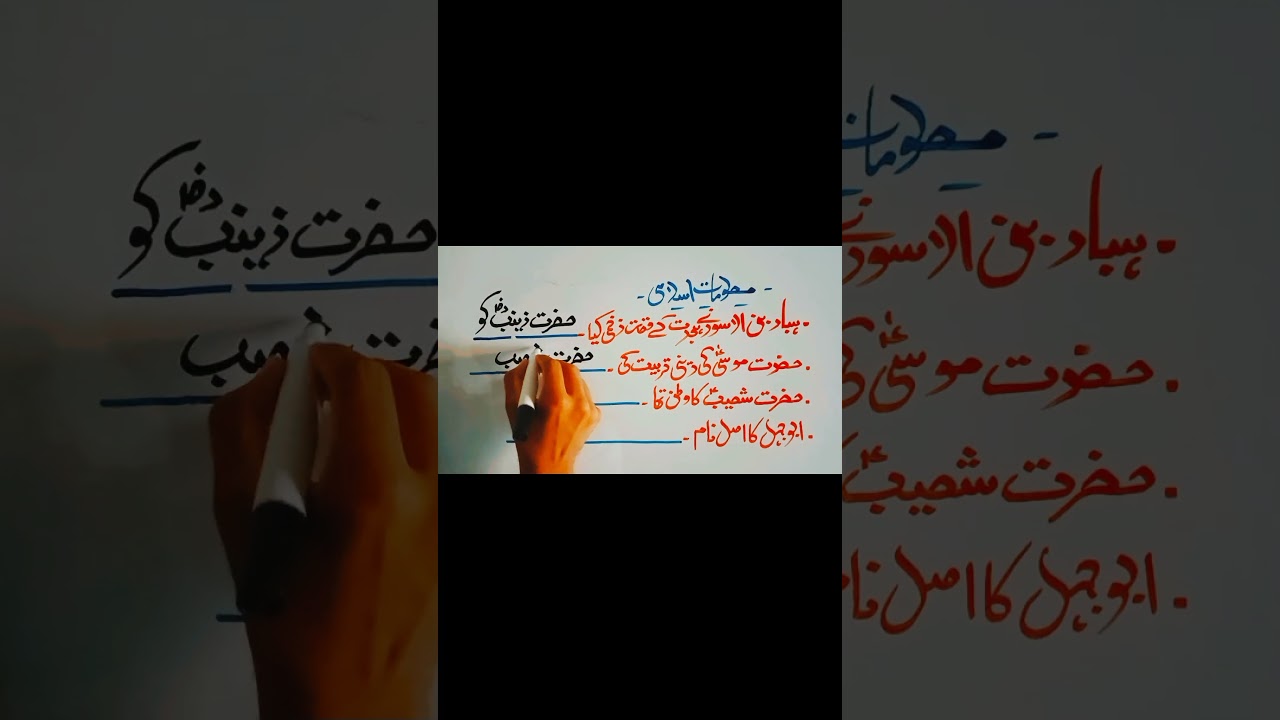 - معلومات اسلامی -
. ہبار بن الاسود نے ہجرت کے وقت زخمی کیا - حضرت زینبؓ کو
. حضرت موسیٰؑ کی دینی تربیت کی - حضرت شعیب
. حضرت شعیبؑ کا وطن تھا -
. ابو جہل کا اصل نام -